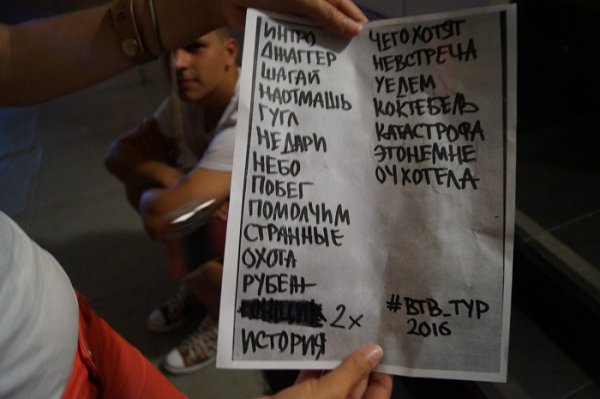 ИНТРО
ДЖАГГЕР
ШАГАЙ
НАОТМАШЬ
ГУГЛ
НЕ ДАРИ
НЕБО
ПОБЕГ
ПОМОЛЧИМ
СТРАННЫЕ
ОХОТА
РУБЕЖ
2х
ИСТОРИЯ
ЧЕГО ХОТЯТ
НЕВСТРЕЧА
УЕДЕМ
КОКТЕБЕЛЬ
КАТАСТРОФА
ЭТОНЕМНЕ
ОЧ ХОТЕЛА
#ВТВ_ТУР
2016